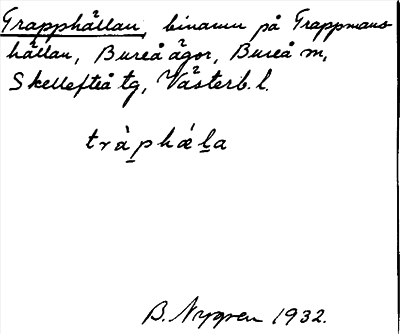 Trapphällan, binamn på Trappmans-
hällan, Bureå ägor, Bureå m,
Skellefteå tg, Västerb. l.
tràp̲hǽl̲a
B. Nygren 1932.